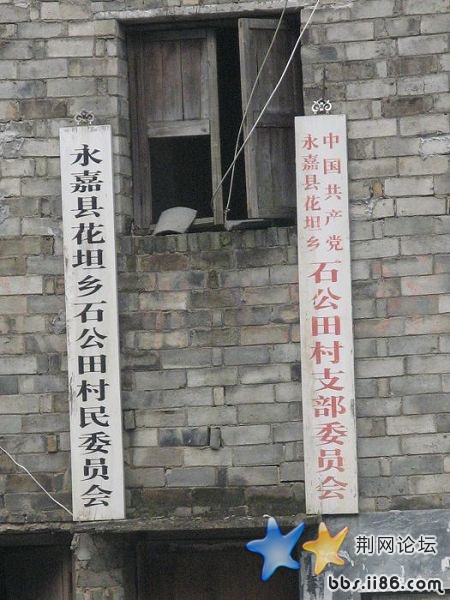 永嘉县花坦乡石公田村民委员会
中国共产党
永嘉县花坦乡
石公田村支部委员会
荆网论坛
bbs.ii86.com